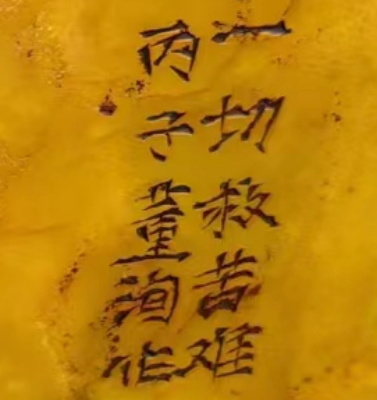 一切救苦难
丙子董洵作